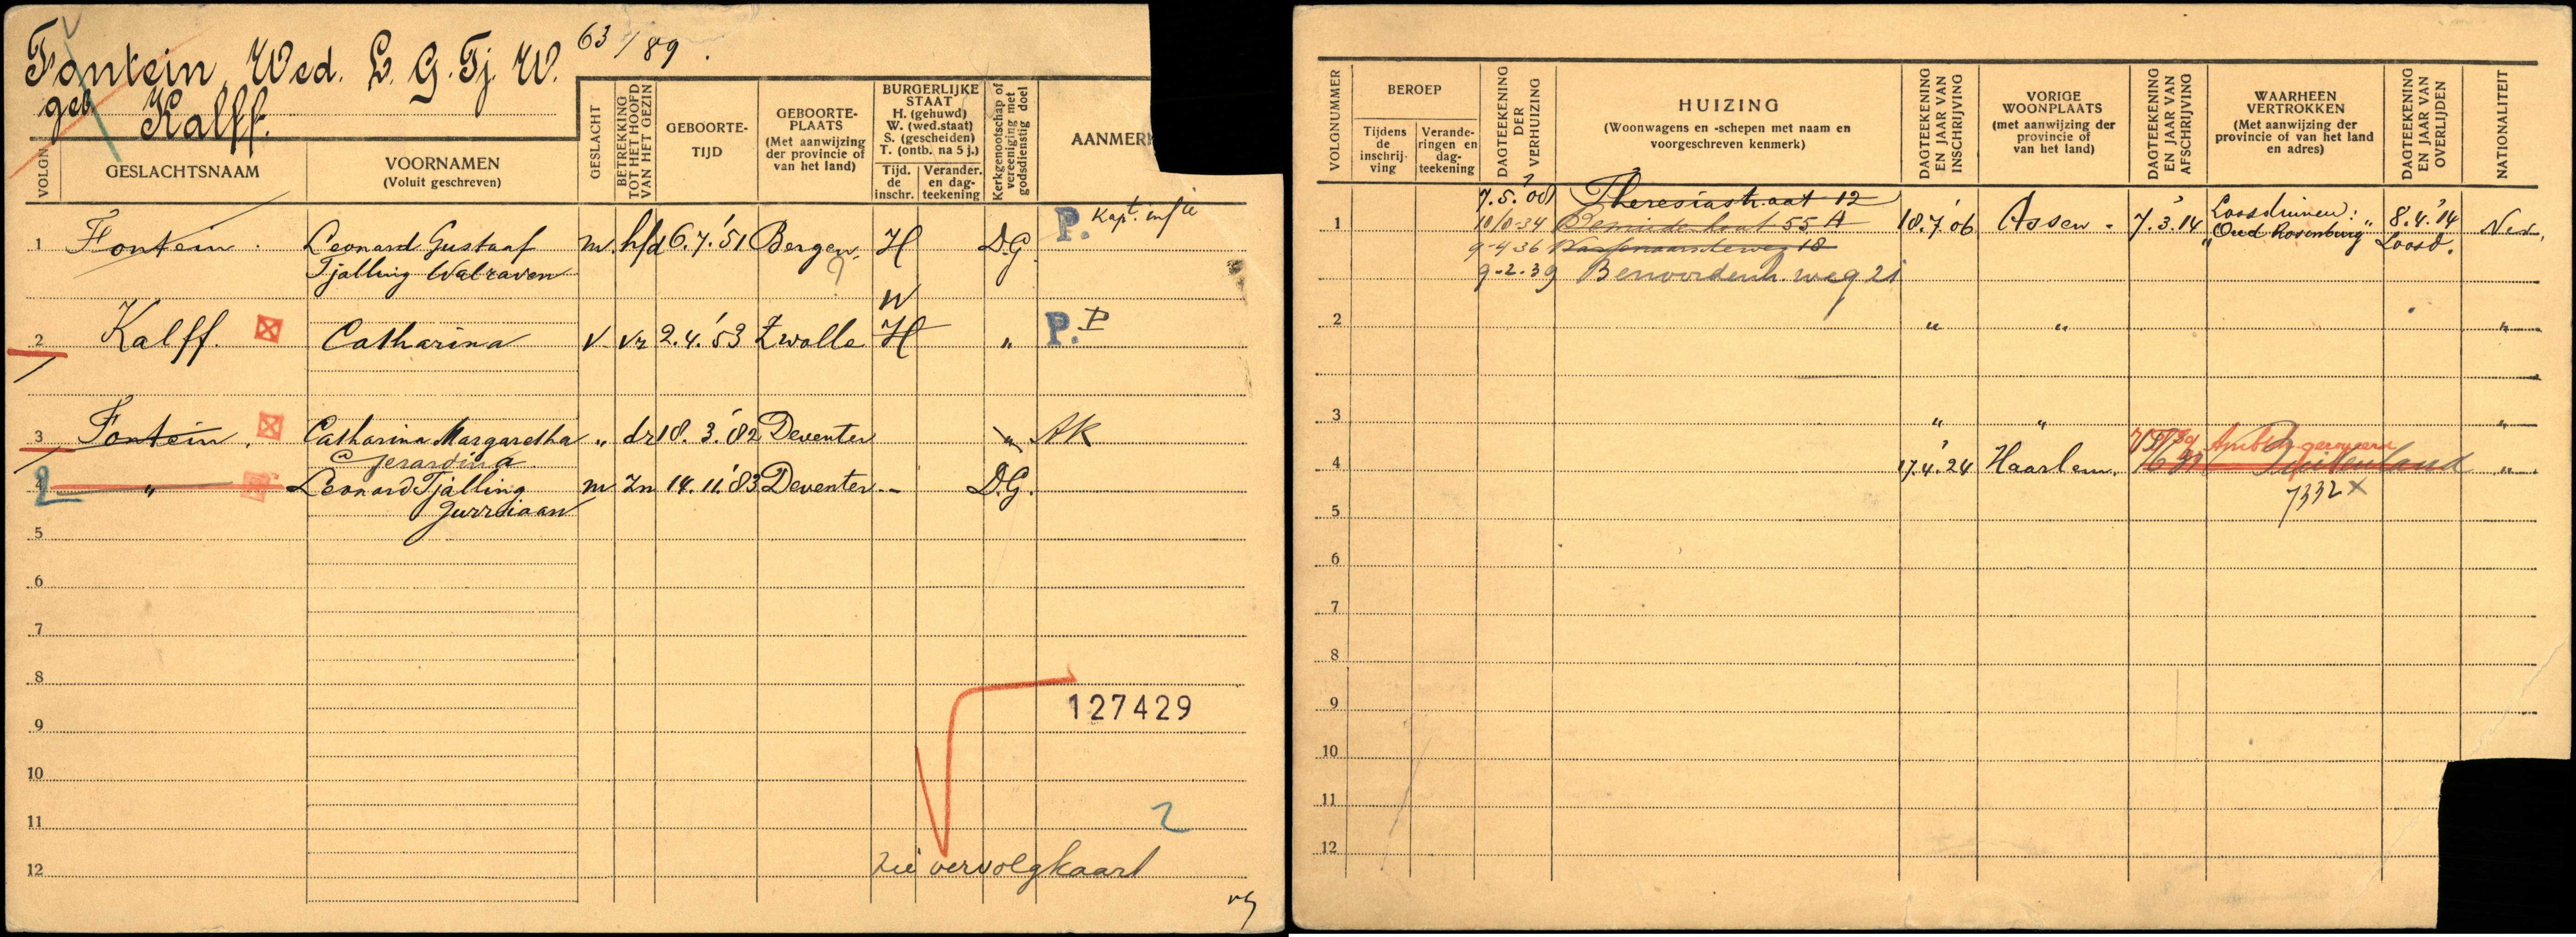 Fontein, Wed. L. G. Tj. W. 63/89.
geb. Kalff.
VOLGN.
GESLACHTSNAAM
VOORNAMEN
(Voluit geschreven)
GESLACHT
BETREKKING
TOT HET HOOFD
VAN HET GEZIN
GEBOORTE-
TIJD
GEBOORTE-
PLAATS
(Met aanwijzing
der provincie of
van het land)
BURGERLIJKE
STAAT
H. (gehuwd)
W. (wed.staat)
S. (gescheiden)
T. (ontb. na 5 j.)
Tijd.
de
inschr.
Verander.
en dag-
teekening
Kerkgenootschap of
vereeniging met
godsdienstig doel
AANMERK
P. Kapt. infie
1 Fontein. Leonard Gustaaf m. hfd 6.7.'51 Bergen. H D.G.
Tjalling Walraven
W
2 Kalff. Catharina v. vr 2.4.'53 Zwolle H " P. P
3 Fontein. Catharina Margaretha " dr 18.3.'82 Deventer " AK
Gerardina
4 " Leonard Tjalling m Zn 14.11.'83 Deventer - D.G.
Jurriaan
5
6
7
8
127429
9
10
11 2
zie vervolgkaart
12
VOLGNUMMER
BEROEP
Tijdens
de
inschrij-
ving
Verande-
ringen en
dag-
teekening
DAGTEEKENING
DER
VERHUIZING
HUIZING
(Woonwagens en -schepen met naam en
voorgeschreven kenmerk)
DAGTEEKENING
EN JAAR VAN
INSCHRIJVING
VORIGE
WOONPLAATS
(met aanwijzing der
provincie of
van het land)
DAGTEEKENING
EN JAAR VAN
AFSCHRIJVING
WAARHEEN
VERTROKKEN
(Met aanwijzing der
provincie of van het land
en adres)
DAGTEEKENING
EN JAAR VAN
OVERLIJDEN
NATIONALITEIT
7.5.'08 Theresiastraat 12
1 10/8-34 Bezuidenhout 55 A 18.7.'06 Assen - 7.3.'14 Loosduinen: "Oud Rosenburg" 8.4.'14 Loosd. Ned.
9-4-36 Wassenaarscheweg 18
9-2-39 Benoordenh. weg 21
2 " " "
3 " " "
Ambtsh. geroyeerd
4 17.4.'24 Haarlem. Buitenland "
7332 X
5
6
7
8
9
10
11
12